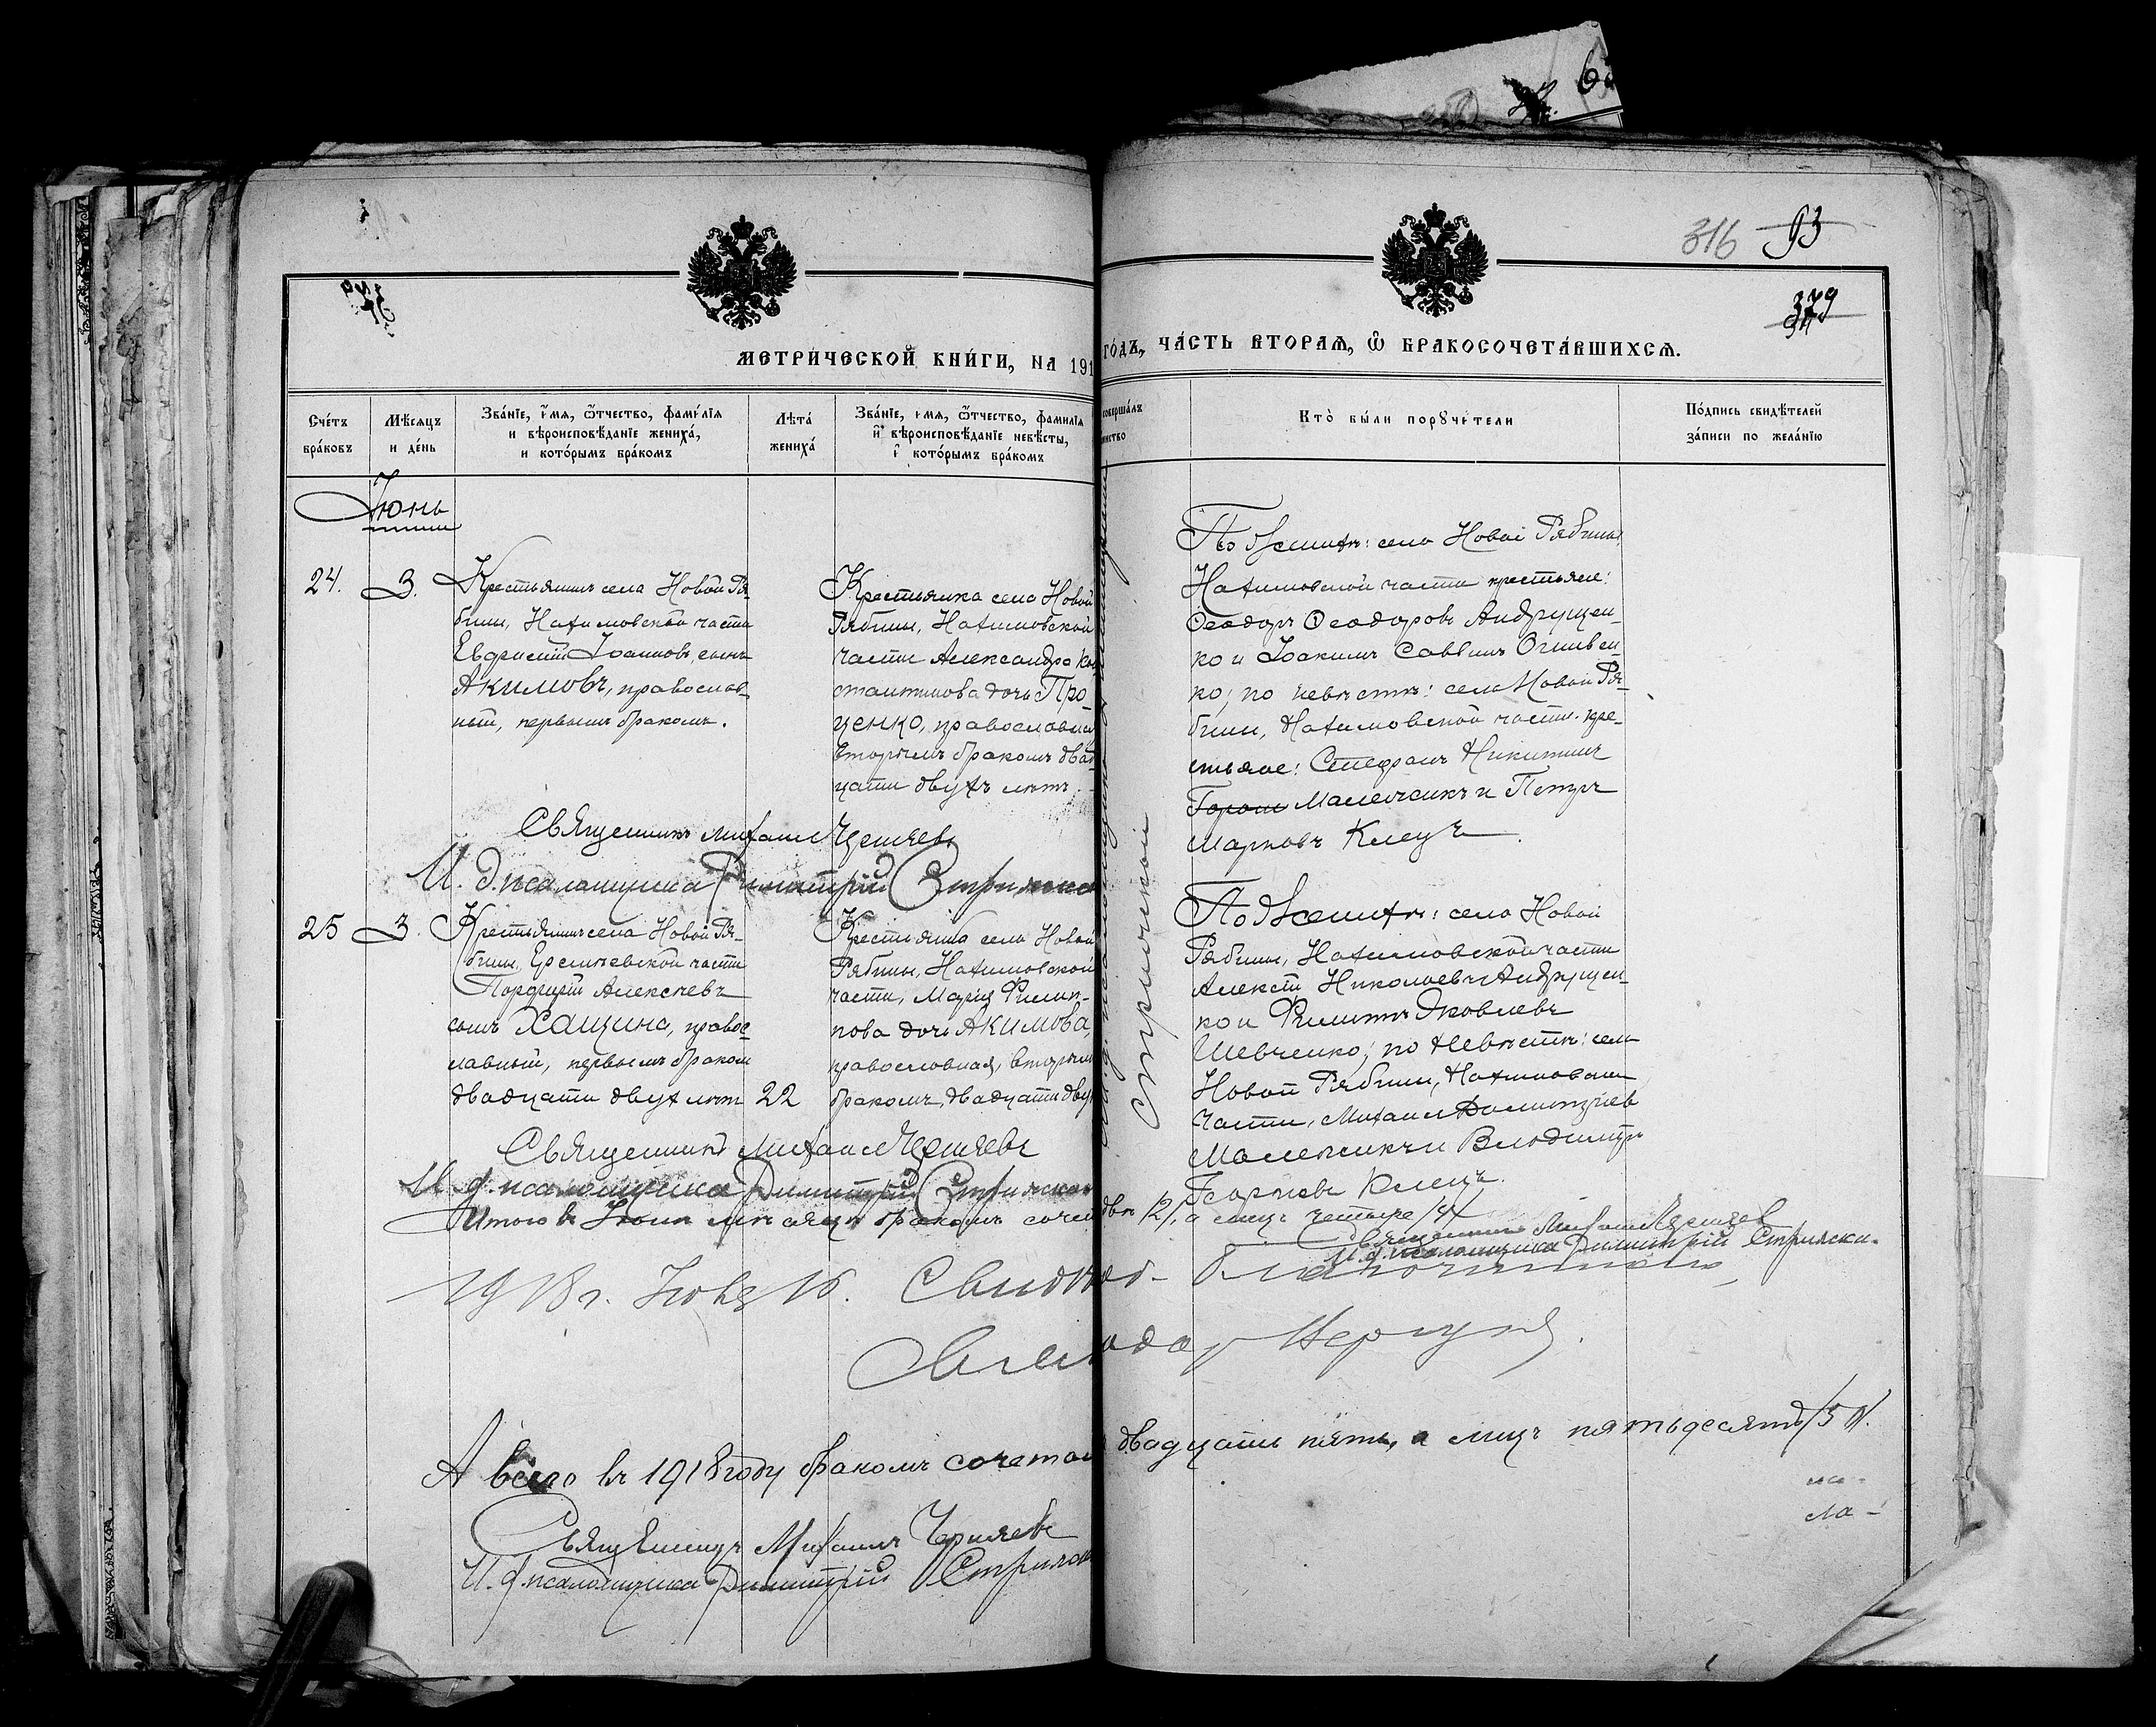 316 93
379
МЕТРИ́ЧЕСКОЙ КНИ́ГИ, НА 191
ГО́ДЪ, ЧА́СТЬ ВТОРАѦ, Ѿ БРАКОСОЧЕТА́ВШИХСѦ.
Сче́тъ бра́ковъ
Мѣ́сѧцъ и де́нь
Зва́нїе, и́мѧ, ѻ́тчество, фами́лїѧ и вѣроисповѣ́данїе жениха́, и кото́рымъ бра́комъ
Лѣта́ жениха́
Зва́нїе, и́мѧ, ѻ́тчество, фами́лїѧ и вѣроисповѣ́данїе невѣ́сты, и кото́рымъ бра́комъ
соверша́лъ
Кто̀ бы́ли порꙋчи́тели
По́дпись свидѣ́телей за́писи по жела́нїю
Іюнь
24. 3.
Крестьянинъ села Новой Ря-
бины, Нахимовской части
Іоанновъ сынъ
Акимовъ, православ-
ный, первымъ бракомъ.
Крестьянка села Новой
Рябины, Нахимовской
части Александра Кон
стантинова дочь Про-
ценко, православная
вторымъ бракомъ двад
цати двухъ лѣтъ.
По женихѣ: села Новой Рябины
Нахимовской части крестьяне:
Ѳеодоръ Ѳеодоровъ Андрущен-
ко и Іоакимъ Саввинъ Огнивен-
ко; по невѣстѣ: села Новой Ря-
бины, Нахимовской части кре-
стьяне: Стефанъ Никитинъ
Маленжикъ и Петръ
Марковъ Клецъ.
Священникъ Михаилъ Черняевъ
И. д. псаломщика Димитрій
25 3.
Крестьянинъ села Новой Ря-
бины, части
Порфирій Алексѣевъ
сынъ Хащина, правос-
лавный, первымъ бракомъ
двадцати двухъ лѣтъ 22
Крестьянка села Новой
Рябины, Нахимовской
части, Марія Филип-
пова дочь Акимова,
православная, вторымъ
бракомъ, двадцати двух
По женихѣ: села Новой
Рябины, Нахимовской части
Алексѣй Николаевъ Андрущен-
ко и Филиппъ Яковлевъ
Шевченко; по невѣстѣ: села
Новой Рябины, Нахимовской
части, Михаилъ Димитріевъ
Маленжикъ и Владиміръ
Георгіевъ Клецъ.
Священникъ Михаилъ Черняевъ
И. д. псаломщика Димитрій
Итого въ Іюнѣ мѣсяцѣ бракомъ сочет двѣ /2/, а лицъ четыре /4/
Священникъ Михаилъ Черняевъ
И. д. псаломщика Димитрій
1918 г.
А всего въ 1918 году бракомъ сочетал двадцать пять, а лицъ пятьдесятъ /50/.
Священникъ Михаилъ Черняевъ
И. д. псаломщика Димитрій